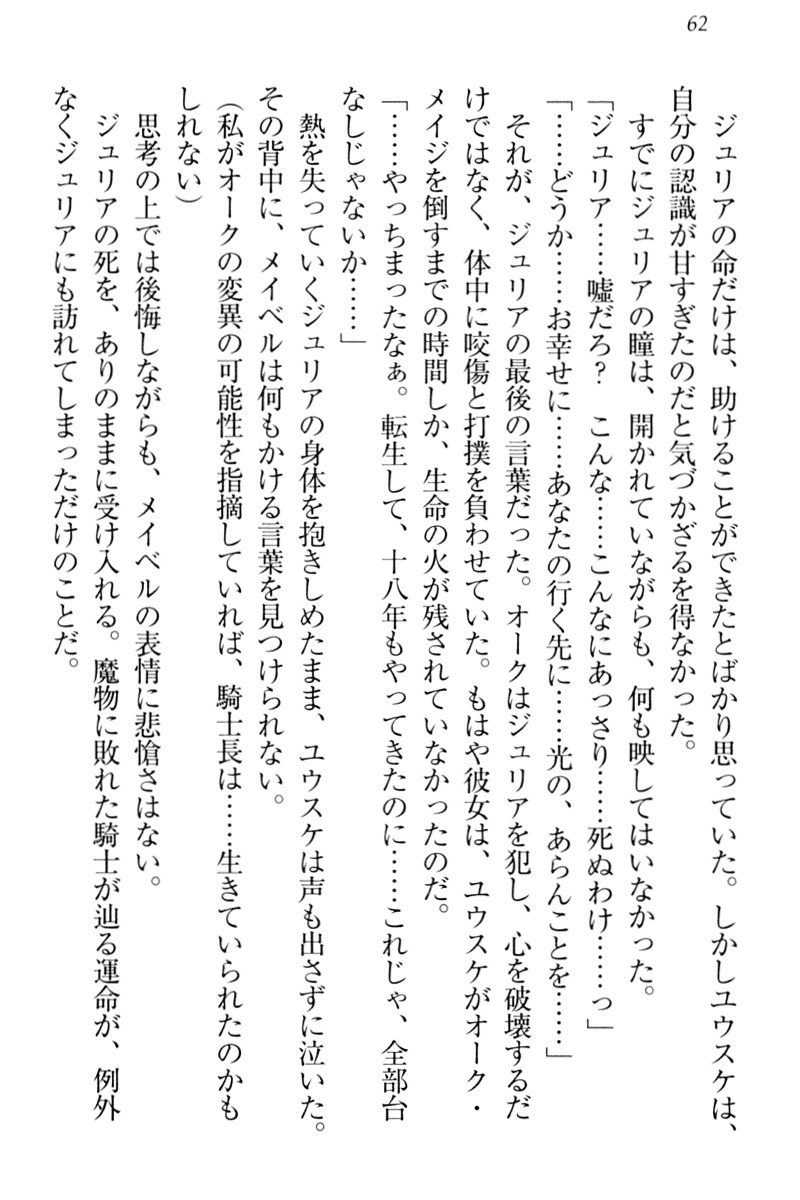 62
ジュリアの命だけは、助けることができたとばかり思っていた。しかしユウスケは、
自分の認識が甘すぎたのだと気づかざるを得なかった。
すでにジュリアの瞳は、開かれていながらも、何も映してはいなかった。
「ジュリア……嘘だろ？　こんな……こんなにあっさり……死ぬわけ……っ」
「……どうか……お幸せに……あなたの行く先に……光の、あらんことを……」
それが、ジュリアの最後の言葉だった。オークはジュリアを犯し、心を破壊するだ
けではなく、体中に咬傷と打撲を負わせていた。もはや彼女は、ユウスケがオーク・
メイジを倒すまでの時間しか、生命の火が残されていなかったのだ。
「……やっちまったなぁ。転生して、十八年もやってきたのに……これじゃ、全部台
なしじゃないか……」
熱を失っていくジュリアの身体を抱きしめたまま、ユウスケは声も出さずに泣いた。
その背中に、メイベルは何もかける言葉を見つけられない。
（私がオークの変異の可能性を指摘していれば、騎士長は……生きていられたのかも
しれない）
思考の上では後悔しながらも、メイベルの表情に悲愴さはない。
ジュリアの死を、ありのままに受け入れる。魔物に敗れた騎士が辿る運命が、例外
なくジュリアにも訪れてしまっただけのことだ。